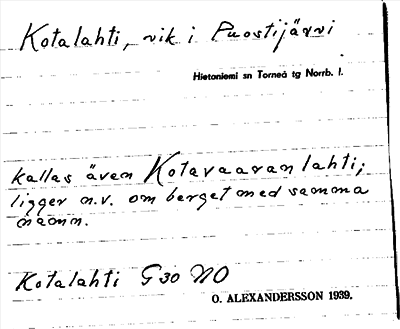 Kotalahti, vik i Puostijärvi
Hietaniemi sn Torneå tg Norrb. l.
kallas även Kotavaaran lahti;
ligger n.v. om berget med samma
namn.
Kotalahti G30 NO
O. ALEXANDERSSON 1939.